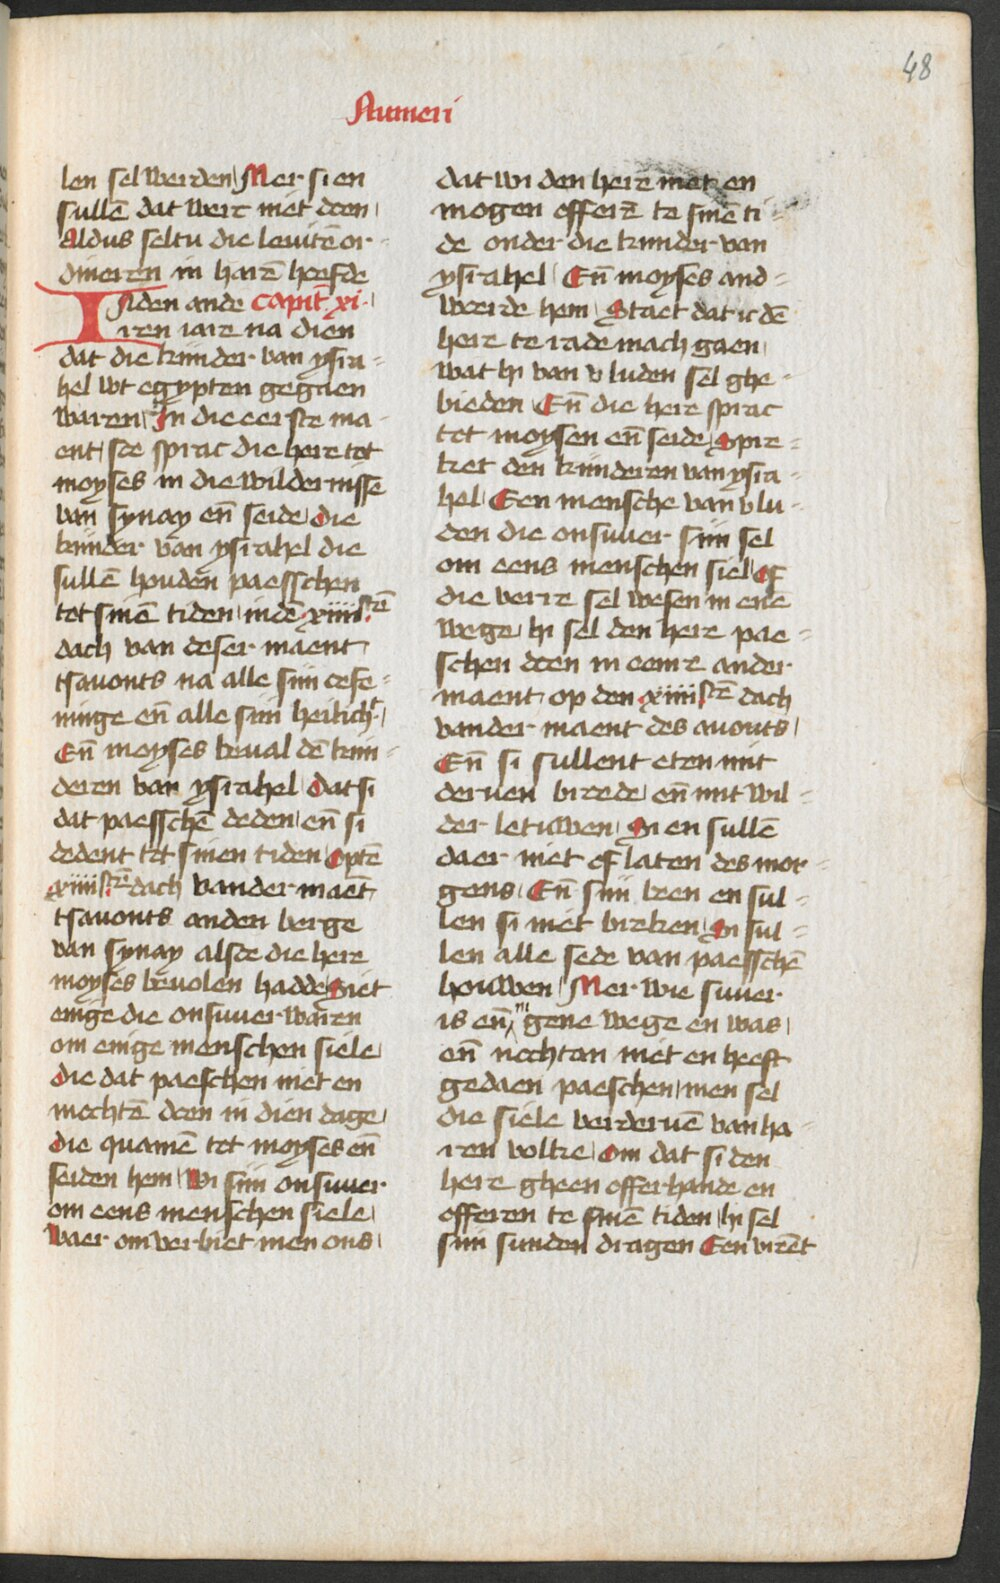 48
Numeri
len sel werden Mer si en
sullē dat werc niet doen
Aldus seltu die leuitē or-
dineren in harē heefde
Inden ande Capit̄ xi.
iren iare na dien
dat die kinder van ysra-
hel wt egypten gegaen
waren In die eerste ma-
ent soe sprac die here tot
moyses in die wildernisse
van synay en̄ seide Die
kinder van ysrahel die
sullē houden paesschen
tot sinē tiden indē xiiiistē
dach van deser maent
tsauonts na alle sijn oefe-
ninge en̄ alle sijn heilich
En̄ moyses beual dē kin-
deren van ysrahel Dat si
dat paesschē deden en̄ si
dedent tot sinen tiden Optē
xiiiistē dach vander maēt
tsauonts anden berge
van synay alsoe die here
moyses beuolen hadde Siet
enige die onsuuer waren
om enige menschen siele
Die dat paeschen niet en
mochtē doen in dien dage
Die quamē tot moyses en̄
seiden hem Wi sijn onsuuer
om eens menschen siele
Waer om verbiet men ons
dat wi den here niet en
mogen offerē te sinē ti-
de onder die kinder van
ysrahel En̄ moyses and-
weerde hem Staet dat ic dē
here te rade mach gaen
wat hi van v luden sel ghe-
bieden En̄ die here sprac
tot moysen en̄ seide Spre-
ket den kinderen van ysra-
hel Een mensche van v lu-
den die onsuuer sijn sel
om eens menschen siel Of
die verre sel wesen in enē
wege hi sel den here pae-
schen doen in eenre ander
maent op den xiiiistē dach
vander maent des auonts
En̄ si sullent eten mit
deruen brede en̄ mit wil-
der letuwen Si en sullē
daer niet of laten des mor-
gens En̄ sijn been en sul-
len si niet breken Si sul-
len alle sede van paesschē
houwen Mer wie suuer
is en̄ in gene wege en was
en̄ nochtan niet en heeft
gedaen paeschen men sel
die siele verderuē van ha-
ren volke Om dat si den
here gheen offerhande en
offeren te sinē tiden hi sel
sijn sunden dragen Een vrēt